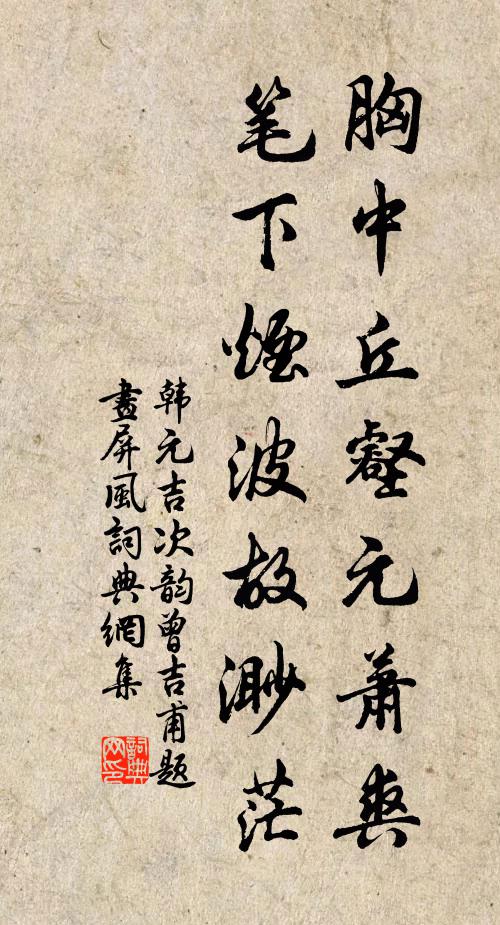 胸中丘壑元萧爽
笔下烟波故渺茫
韩元吉次韵曾吉甫题
畫屏風詞典網集
詞典
网印